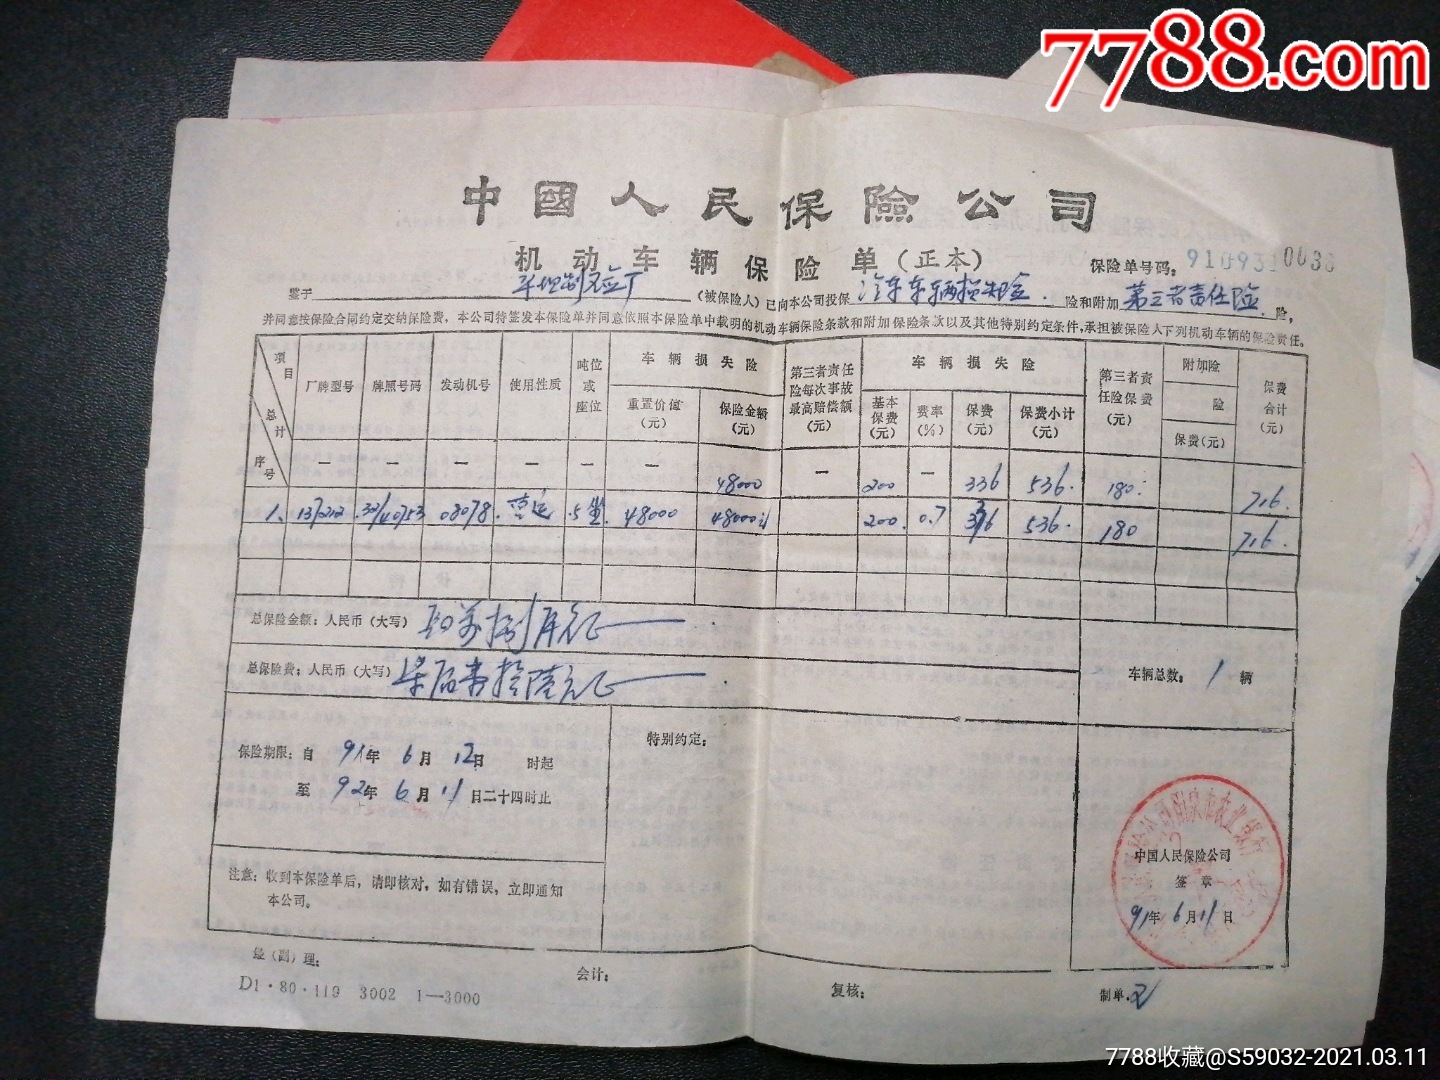 7788.com
中國人民保險公司
机动车辆保险单(正本)
保险单号码: 9109310036
鉴于 (被保险人)已向本公司投保 汽车车辆损失险 险和附加 第三者责任险 险,
并同意按保险合同约定交纳保险费,本公司特签发本保险单并同意依照本保险单中载明的机动车辆保险条款和附加保险条款以及其他特别约定条件,承担被保险人下列机动车辆的保险责任。
项目 总计 序号 厂牌型号 牌照号码 发动机号 使用性质 吨位或座位 车辆损失险 第三者责任险每次事故最高赔偿额(元) 车辆损失险 第三者责任险保费(元) 附加险 保费合计(元)
重置价值(元) 保险金额(元) 基本保费(元) 费率(%) 保费(元) 保费小计(元) 险 保费(元)
— — — — — — 48000 — 200 — 336 536. 180. 716.
1. 32/40753 08078. 营运 .5坐 48000 48000 200. 0.7 336 536. 180 716.
总保险金额:人民币(大写) 肆万捌仟元正
总保险费:人民币(大写) 柒佰壹拾陆元正
车辆总数: 1 辆
保险期限:自 91年 6月 12日 时起
至 92年 6月 11日二十四时止
特别约定:
注意:收到本保险单后,请即核对,如有错误,立即通知
本公司。
中国人民保险公司
签章
91年 6月11日
经(副)理:
会计:
复核:
制单.
D1·80·119 3002 1—3000
7788收藏@S59032-2021.03.11